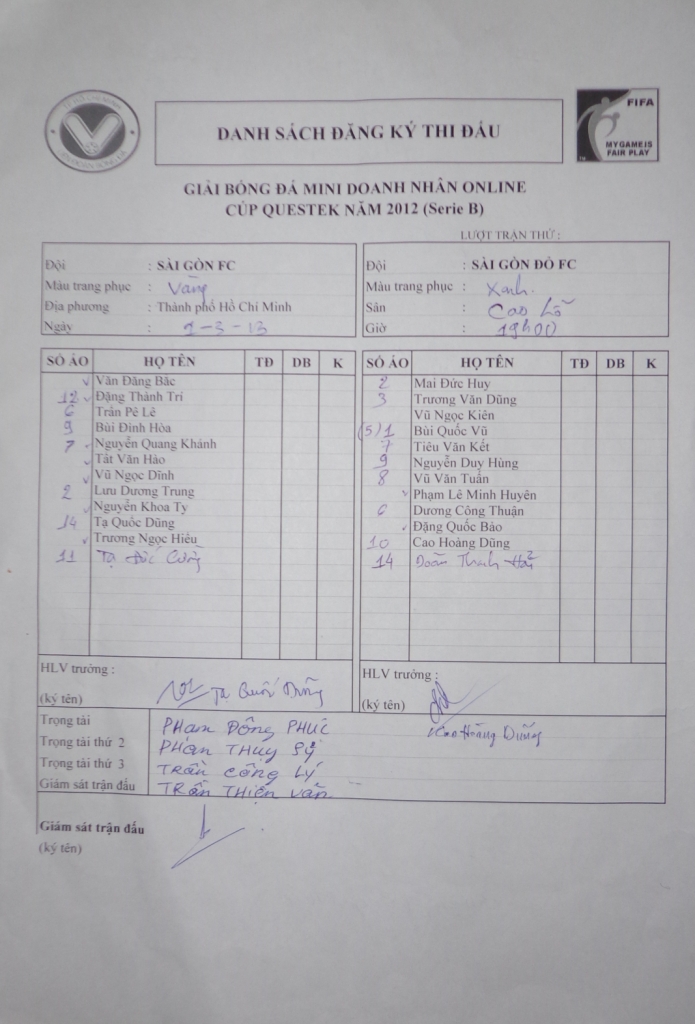 DANH SÁCH ĐĂNG KÝ THI ĐẤU
FIFA
MY GAME IS
FAIR PLAY
GIẢI BÓNG ĐÁ MINI DOANH NHÂN ONLINE
CÚP QUESTEK NĂM 2012 (Serie B)
LƯỢT TRẬN THỨ :
Đội : SÀI GÒN FC
Màu trang phục : Vàng
Địa phương : Thành phố Hồ Chí Minh
Ngày : 1-3-13
Đội : SÀI GÒN ĐÔ FC
Màu trang phục : Xanh.
Sân : Cao Lỗ
Giờ : 19h00
SỐ ÁO HỌ TÊN TĐ DB K
Văn Đăng Bắc
12 Đặng Thành Trí
6 Trần Pê Lê
9 Bùi Đình Hòa
7 Nguyễn Quang Khánh
Tất Văn Hảo
Vũ Ngọc Dĩnh
2 Lưu Dương Trung
Nguyễn Khoa Ty
14 Tạ Quốc Dũng
Trương Ngọc Hiếu
11 Tạ
SỐ ÁO HỌ TÊN TĐ DB K
2 Mai Đức Huy
3 Trương Văn Dũng
Vũ Ngọc Kiên
(5) 1 Bùi Quốc Vũ
7 Tiêu Văn Kết
9 Nguyễn Duy Hùng
8 Vũ Văn Tuấn
Phạm Lê Minh Huyên
6 Dương Công Thuận
Đặng Quốc Bảo
10 Cao Hoàng Dũng
14 Đoàn Thanh Hải
HLV trưởng :
(ký tên) Tạ Quốc Dũng
HLV trưởng :
(ký tên)
Cao Hoàng Dũng
Trọng tài PHẠM ĐÔNG PHÚC
Trọng tài thứ 2 PHAN THỤY SỸ
Trọng tài thứ 3 TRẦN CÔNG LÝ
Giám sát trận đấu TRẦN THIỆN VĂN
Giám sát trận đấu
(ký tên)